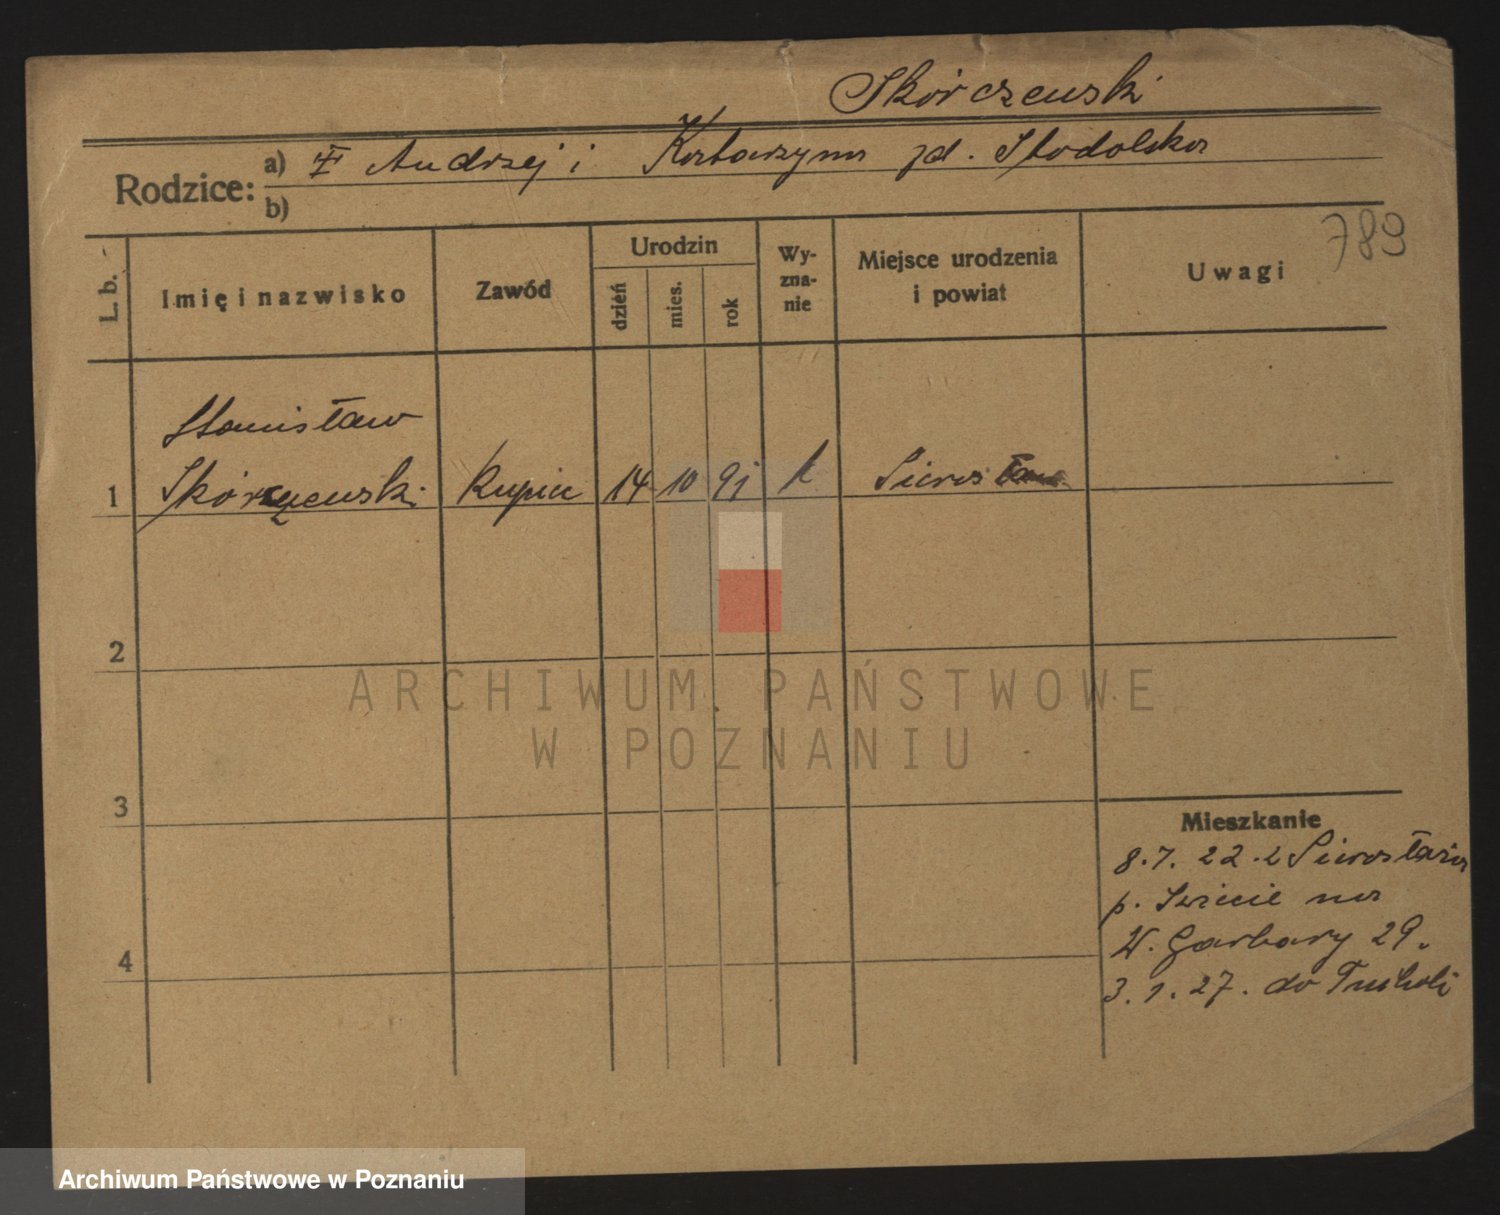 Skórczewski
Rodzice: a) Andrzej i Katarzyna zd. Stodolska
b)
789
L. b.
Imię i nazwisko
Zawód
Urodzin
dzień
mies.
rok
Wy-
zna-
nie
Miejsce urodzenia
i powiat
Uwagi
Stanisław
1 Skórczewski Kupiec 14 10 91 k Sierosław
2
3
4
Mieszkanie
8.7.22. z Sierosławia
p. Świecie na
W. Garbary 29.
3.1.27. do Tucholi
ARCHIWUM PAŃSTWOWE
W POZNANIU
Archiwum Państwowe w Poznaniu